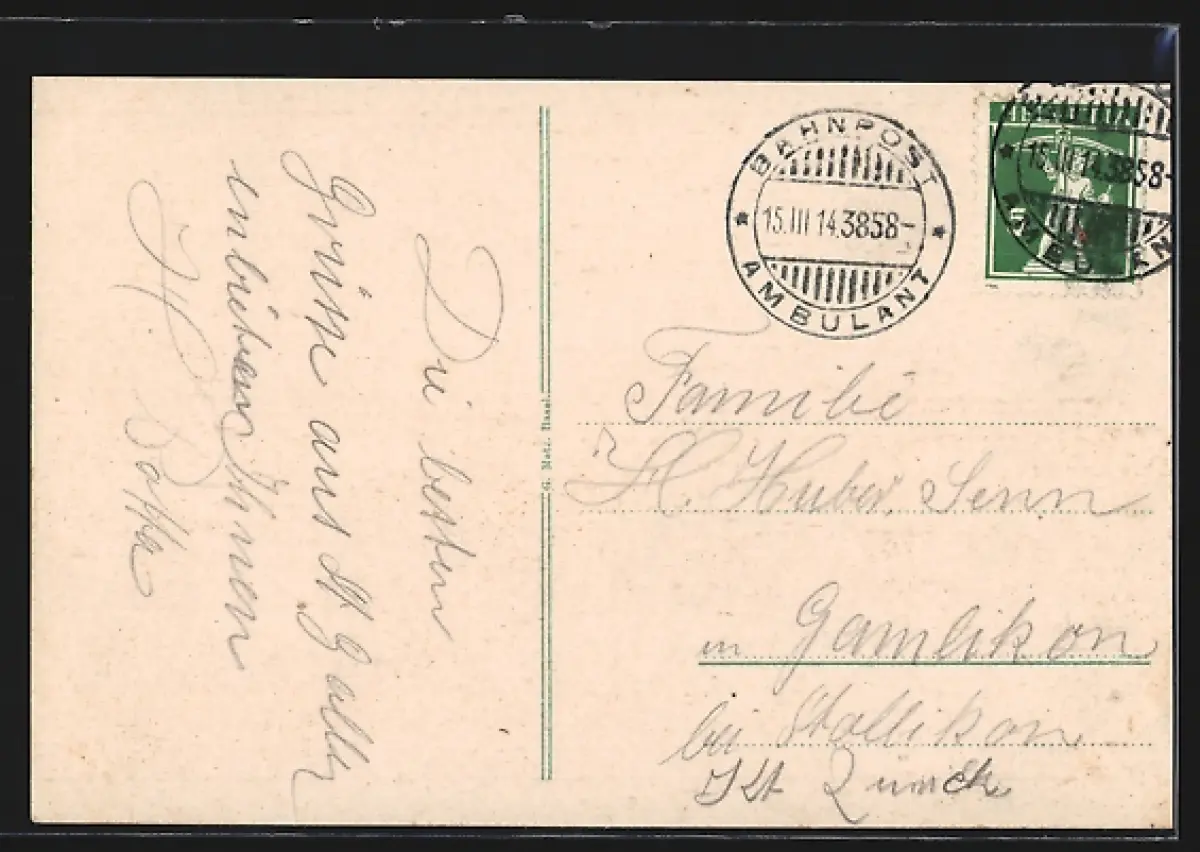 Die besten
Grüsse aus St Gallen
entbieten Ihnen
H Botta
G. Metz, Basel.
BAHNPOST
15.III 14.3858-
AMBULANT
15.III 14.3858-
AMBULAN
Familie
H. Huber, Senn
in Gamlikon
bei Stallikon
Kt Zürich